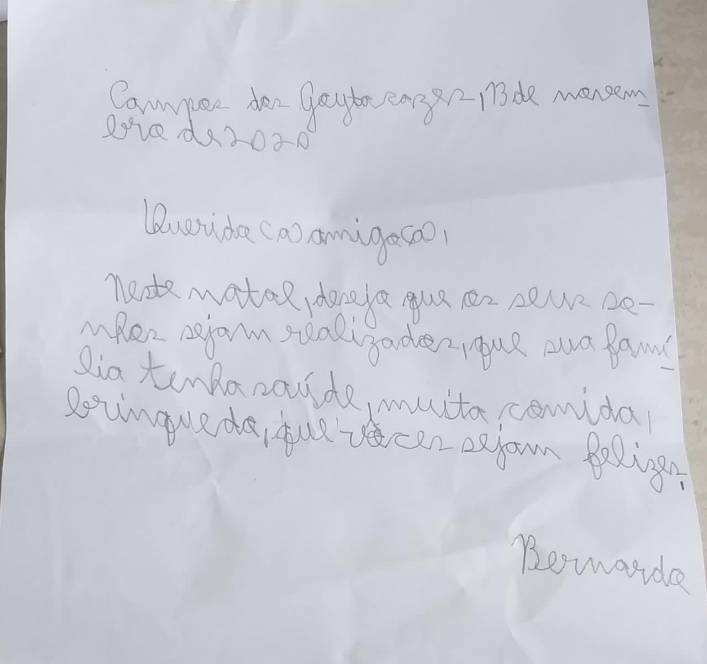 Campos dos Goytacazes, 13 de novem-
bro de 2020
Querido(a) amigo(a),
Neste natal, desejo que os seus so-
nhos sejam realizados, que sua famí-
lia tenha saúde, muita comida,
brinquedo, que vocês sejam felizes.
Bernardo